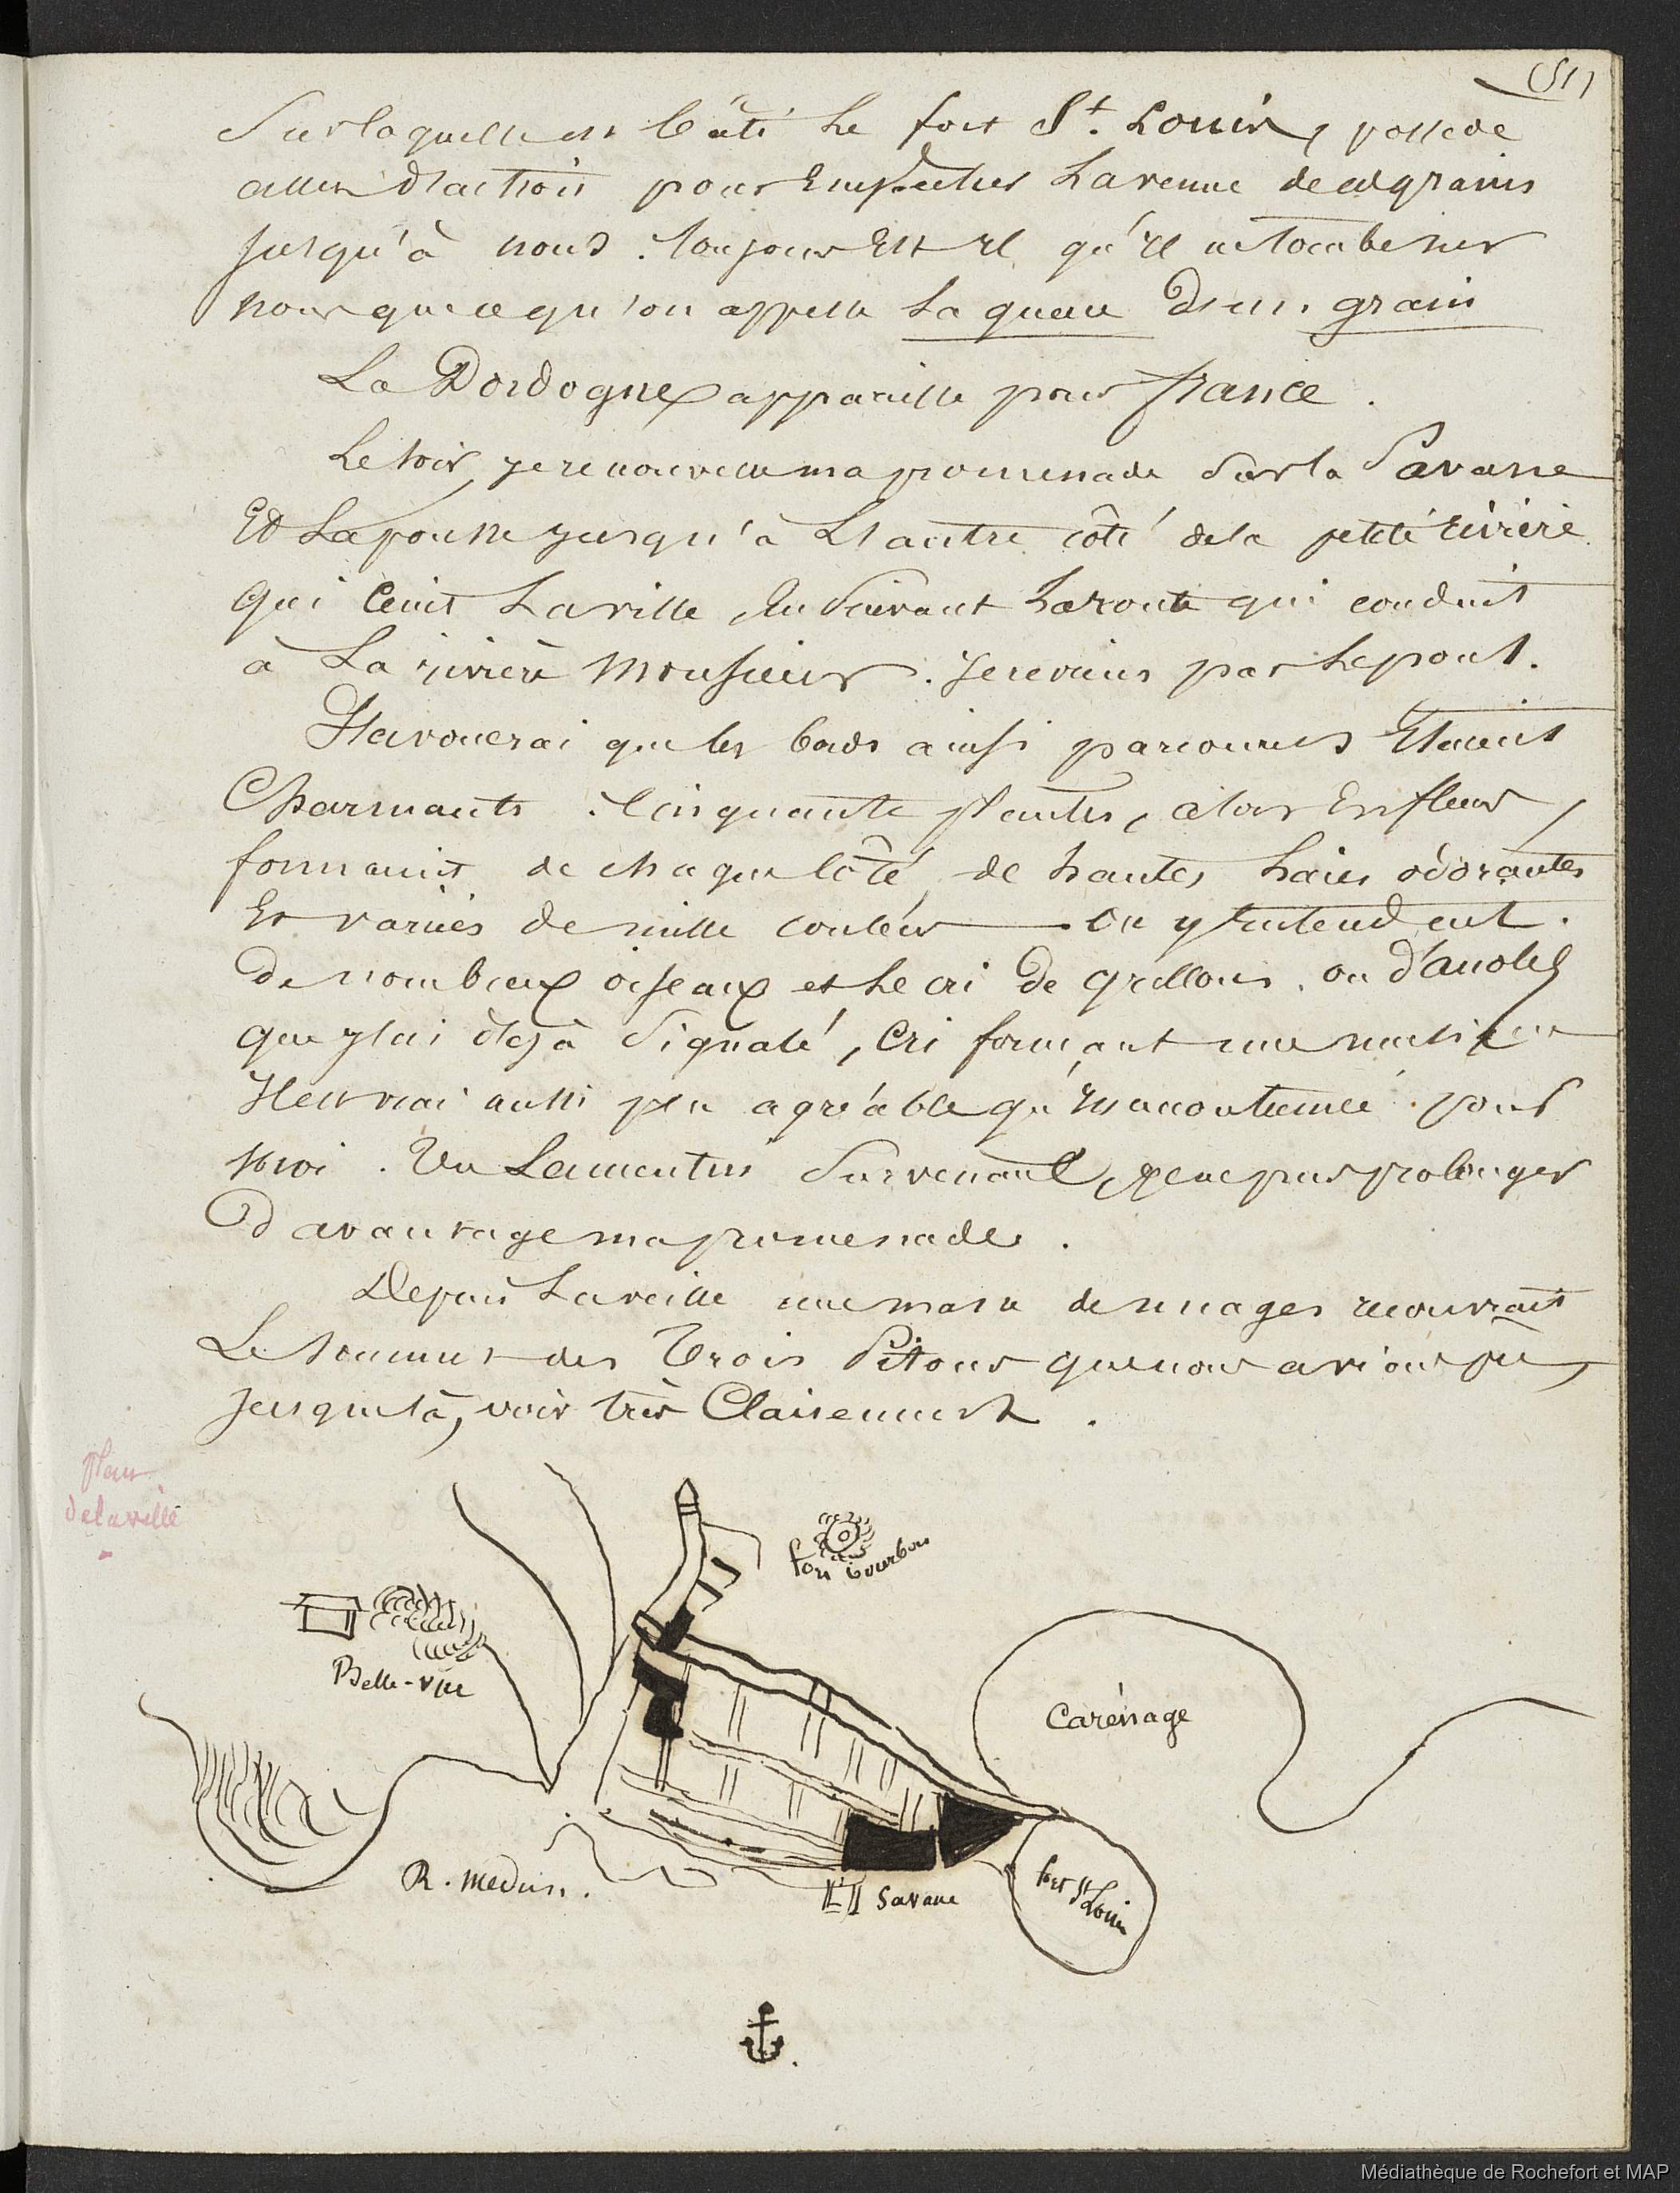 (51)
Sur laquelle est bâti le fort St. Louis, possède
assez d'action pour Empêcher La venue de ces grains
Jusqu'à nous. Toujours Est il qu'il ne tombe sur
nous que ce qu'on appelle La queue D'un grain
La Dordogne appareille pour france.
Le soir, je renouvelle ma promenade sur la Savane
Et La pousse jusqu'à L'autre côté de la petite rivière
qui Ceint La ville, En Suivant La route qui conduit
à La rivière Monsieur. Je revins par Le pont.
J'avouerai que les bords ainsi parcourus Etaient
Charmants. Cinquante plantes, alors En fleur,
formaient de chaque Côté, de hautes haies odorantes
Et variés de mille couleur — On y Entend
De nombreux oiseaux et Le cri De grillons. ou d'anolis
que j'ai déjà Signalé, Cri formant une musique
Il est vrai aussi peu agréable qu'inaccoutumée pour
moi. Un survenant, je ne pus prolonger
D'avantage ma promenade.
Depuis La veille une masse de nuages recouvrait
Le Sommet des Trois Pitons que nous avions pu,
Jusque là, voir très Clairement.
plan
de la ville
fort bourbon
Belle-vue
Carénage
R. Medin.
Savane
fort St Louis
Médiathèque de Rochefort et MAP